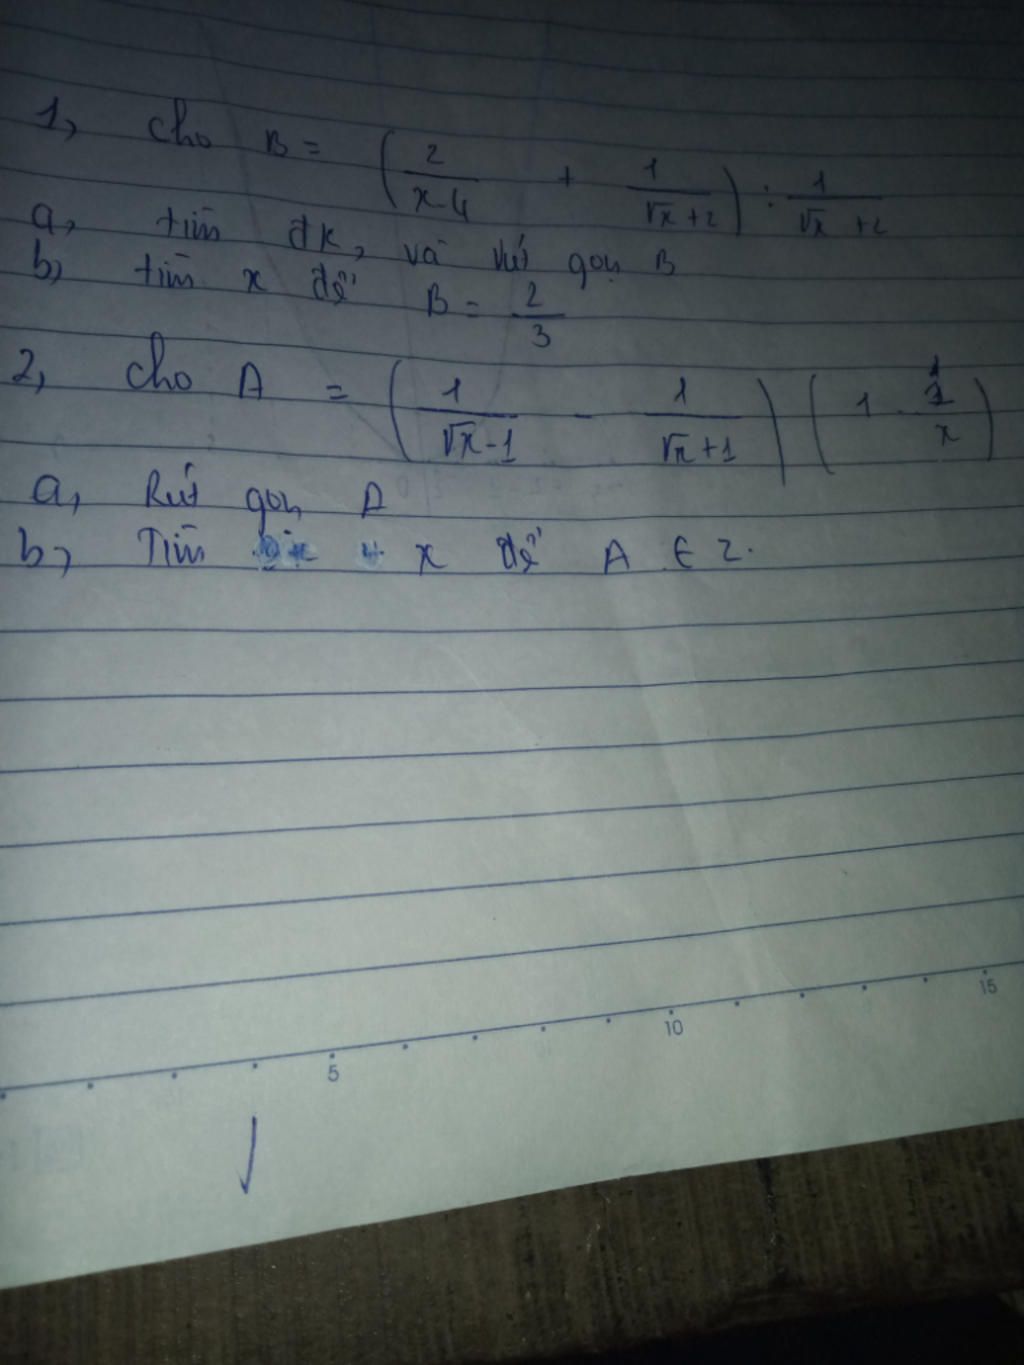 1, cho B = (2/(x-4) + 1/(√x+2)) : 1/(√x+2)
a, tìm đk, và rút gọn B
b, tìm x để B = 2/3
2, cho A = (1/(√x-1) - 1/(√x+1)) (1 - 1/x)
a, Rút gọn A
b, Tìm x để A ∈ Z.
5 10 15